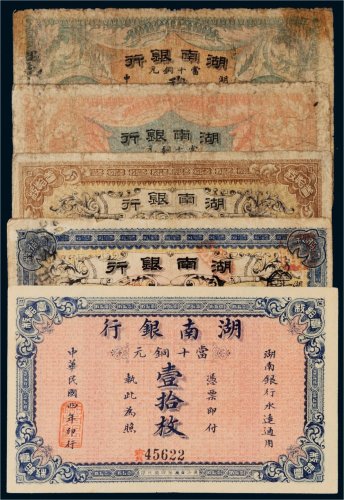 湖南銀行
當十銅元
湖南銀行
當十銅元
湖南銀行
湖南銀行
湖南銀行
當十銅元
湖南銀行永遠通用
憑票即付
壹拾枚
執此為照
中華民國四年印行
45622